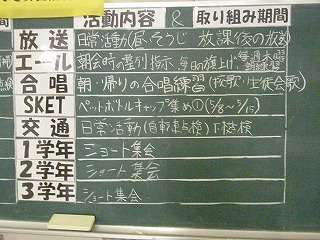 活動内容 & 取り組み期間
放送 日常活動(昼・そうじ 放課後の放送)
エール 朝会時の整列指示 毎日の旗上げ 毎週木曜
合唱 朝・帰りの合唱練習(校歌・生徒会歌)
SKET ペットボトルキャップ集め①(5/8~5/15)
交通 日常活動(自転車点検)下校指
1学年 ショート集会
2学年 ショート集会
3学年 ショート集会